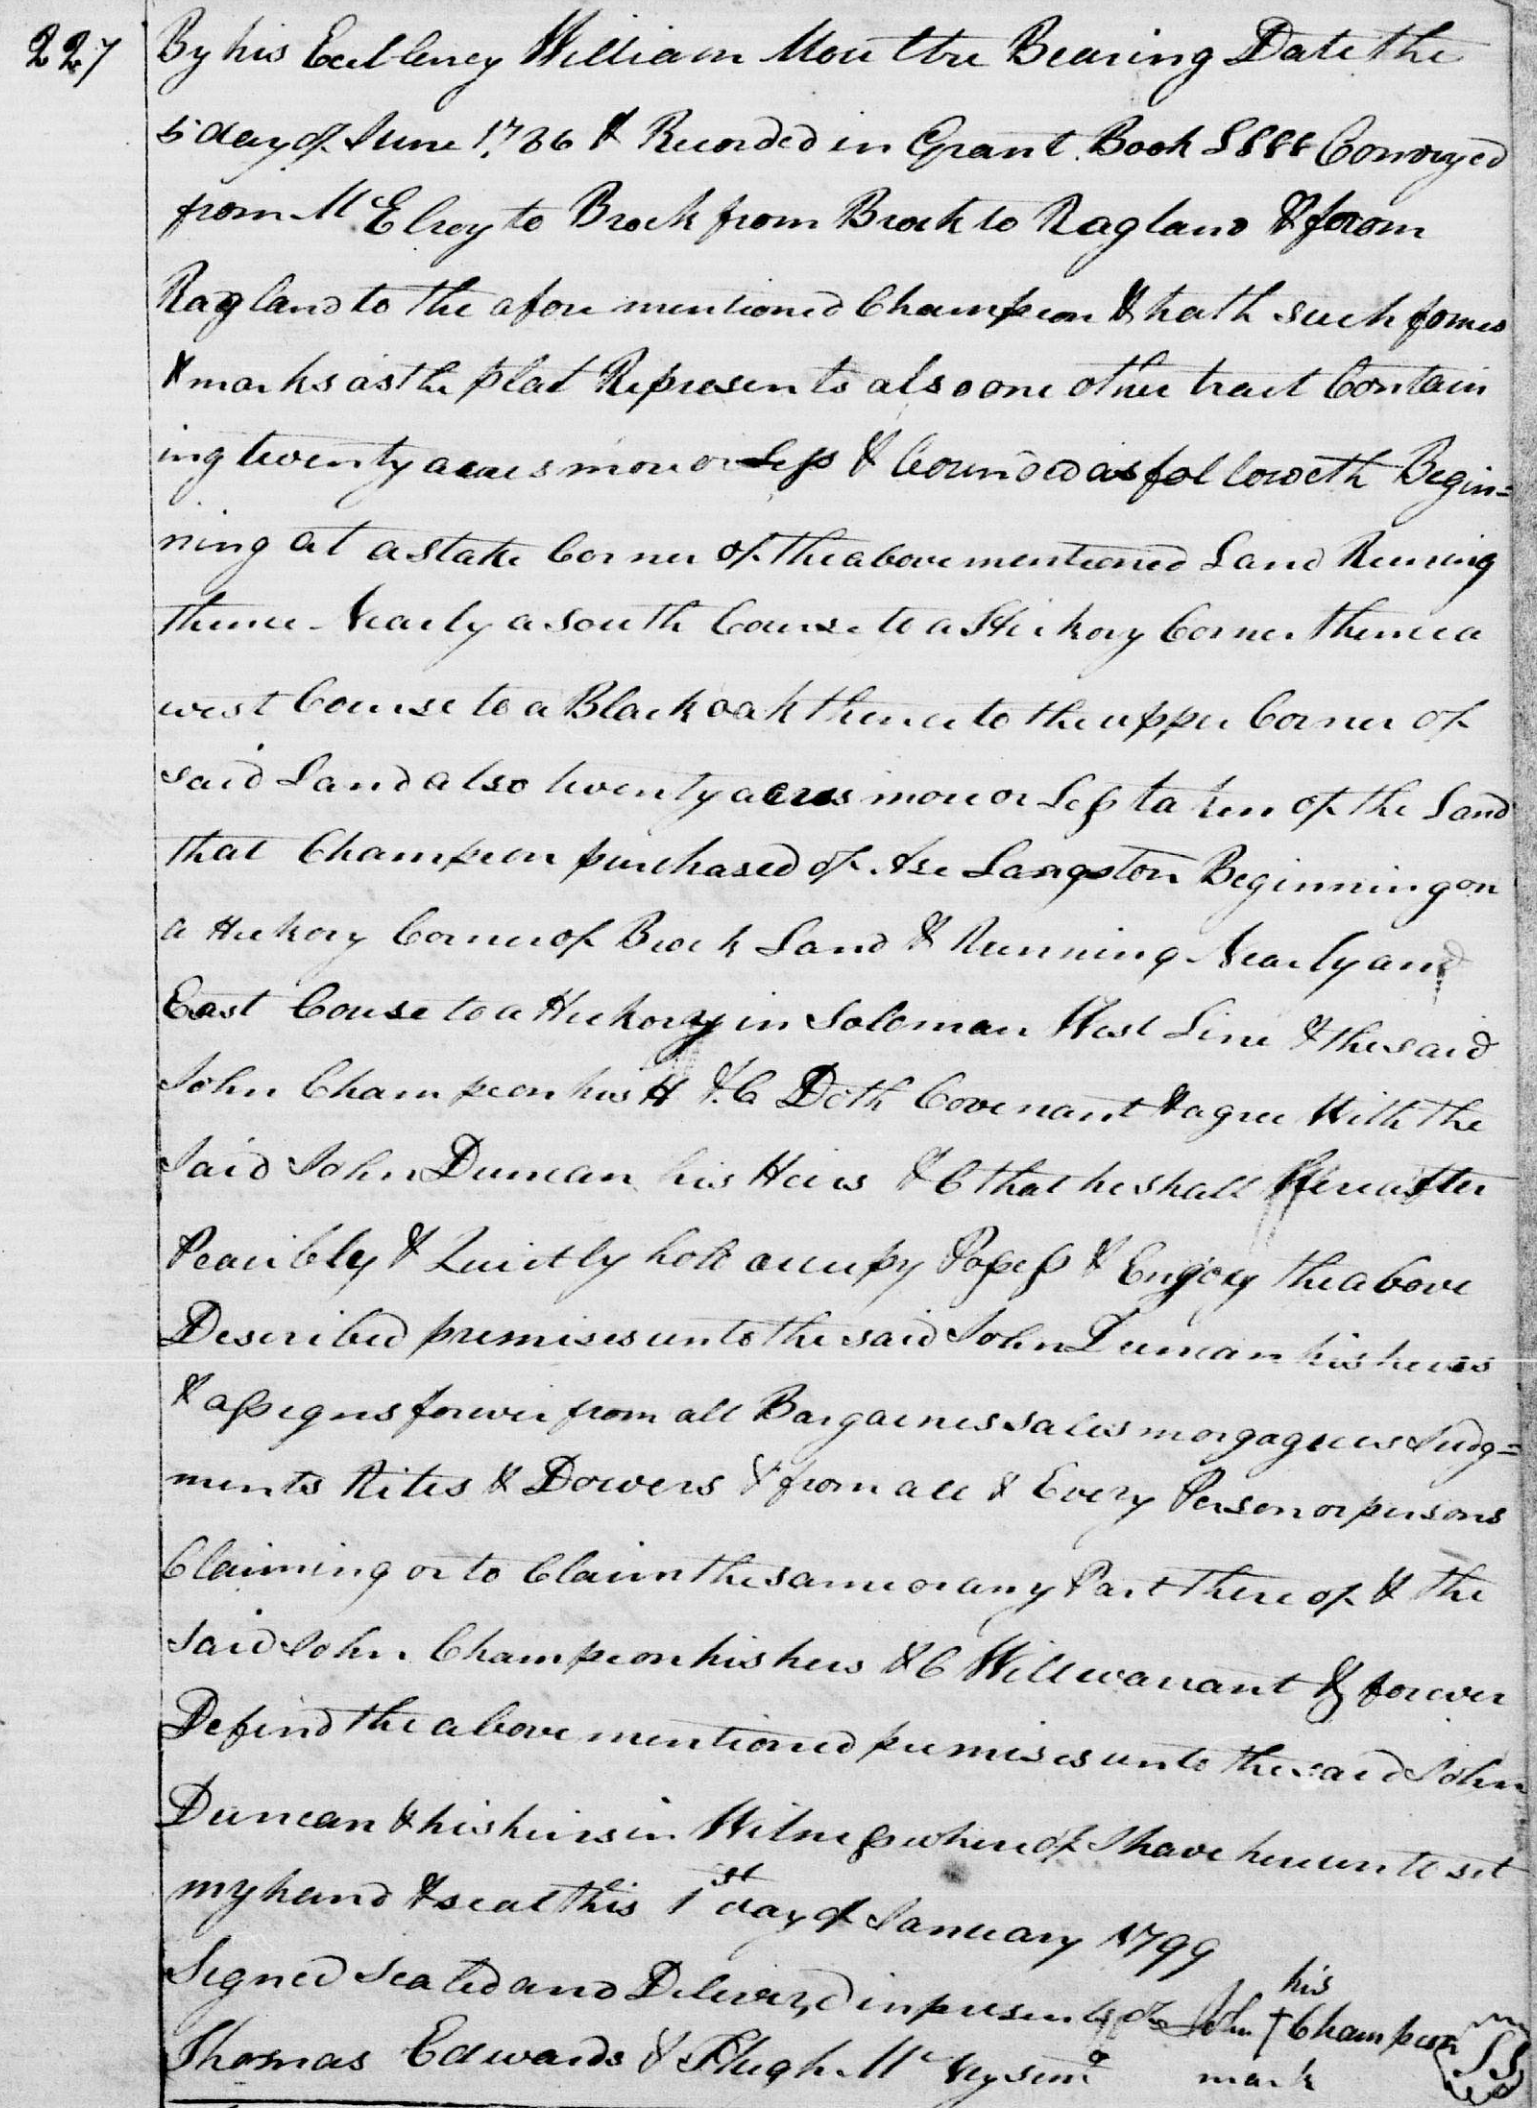 227
By his Exellency William Moultre Bearing Date the
5 day of June 1786 & Recorded in Grant Book Conveyed
from Mc Elroy to Brock from Brock to Ragland & from
Ragland to the afore mentioned Champion & hath such formes
& marks as the plat Represents also one other tract Contain
ing twenty acares more or Less & bounded as followeth Begin=
ning at a stake Corner of the above mentioned Land Runing
thence Nearly a south Course to a Hickory Corner thence a
west Course to a Black oak thence to the upper Corner of
said Land also twenty acres more or Less taken of the Land
that Champion purchased of Langston Beginning on
a Hickory Corner of Brock Land & Running Nearly and
East Couse to a Hickory in Soloman West Line & the said
John Champion his H &.C Doth Covenant & agree With the
Said John Duncan his Heirs &C that he shall Hereafter
Peacibly & Quietly hold occupy Possess & Enjoy the above
Described premises unto the said John Duncan his heirs
& assigns forever from all Bargaines sales morgagees Judg=
ments Rites & Dowers & from all & Every Person or persons
Claiming or to Claim the same or any Part there of & the
said John Champion his heirs &C Will warrant & forever
Defend the above mentioned premises unto the said John
Duncan & his heirs in Witness whereof I have hereunto set
my hand & seal this 1st day of January 1799
his
Signed Sealed and Deliverd in presents of John + Champion LS
Thomas Edwards & Hugh mark